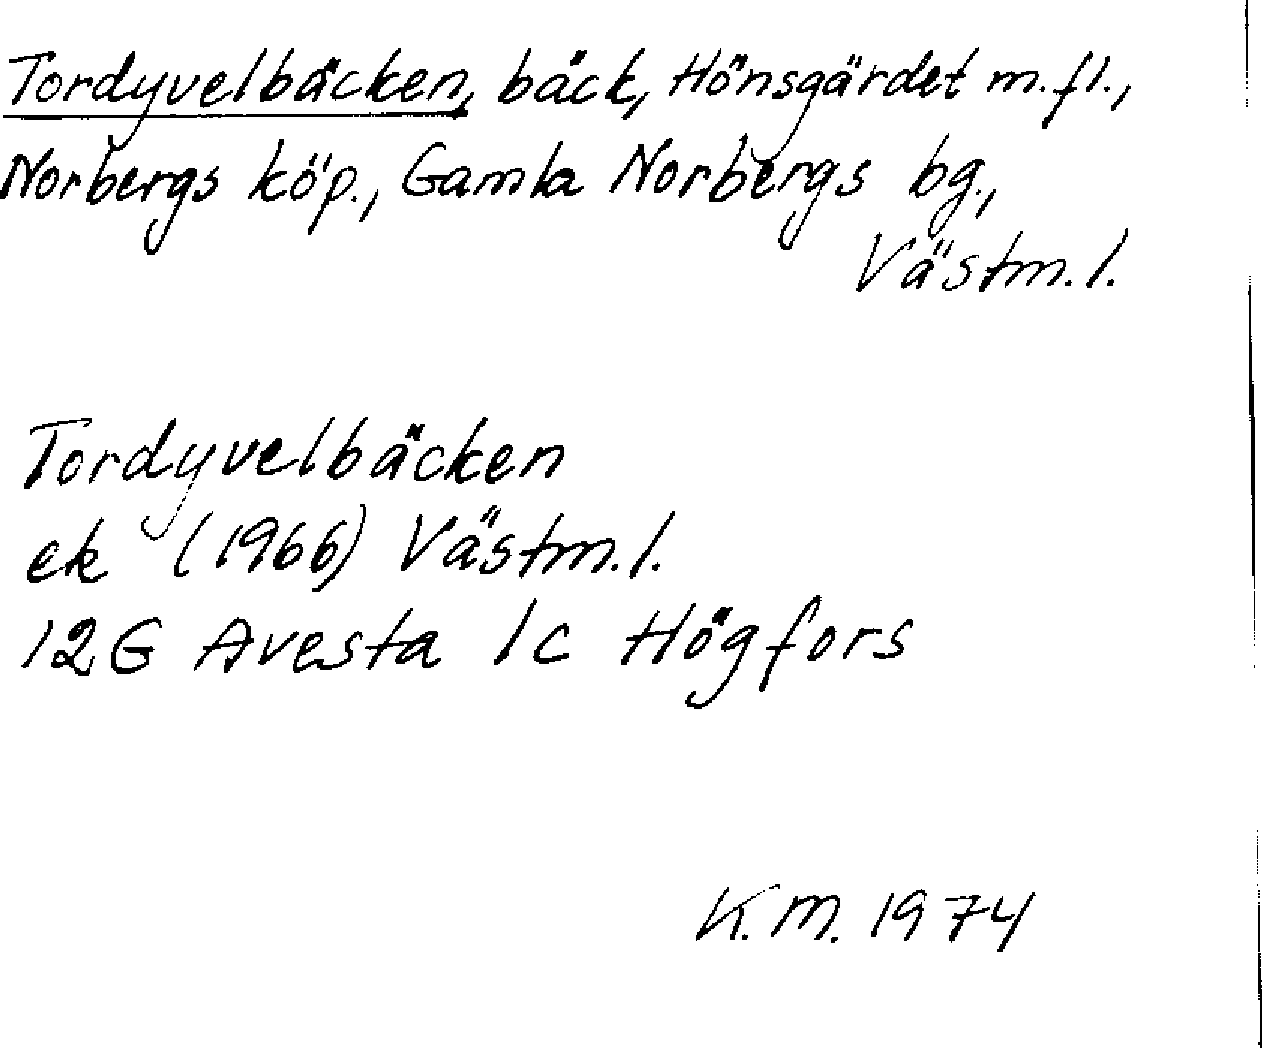 Tordyvelbäcken, bäck, Hönsgärdet m.fl.,
Norbergs köp., Gamla Norbergs bg.,
Västm.l.
Tordyvelbäcken
ek (1966) Västm.l.
12G Avesta 1c Högfors
K.M. 1974